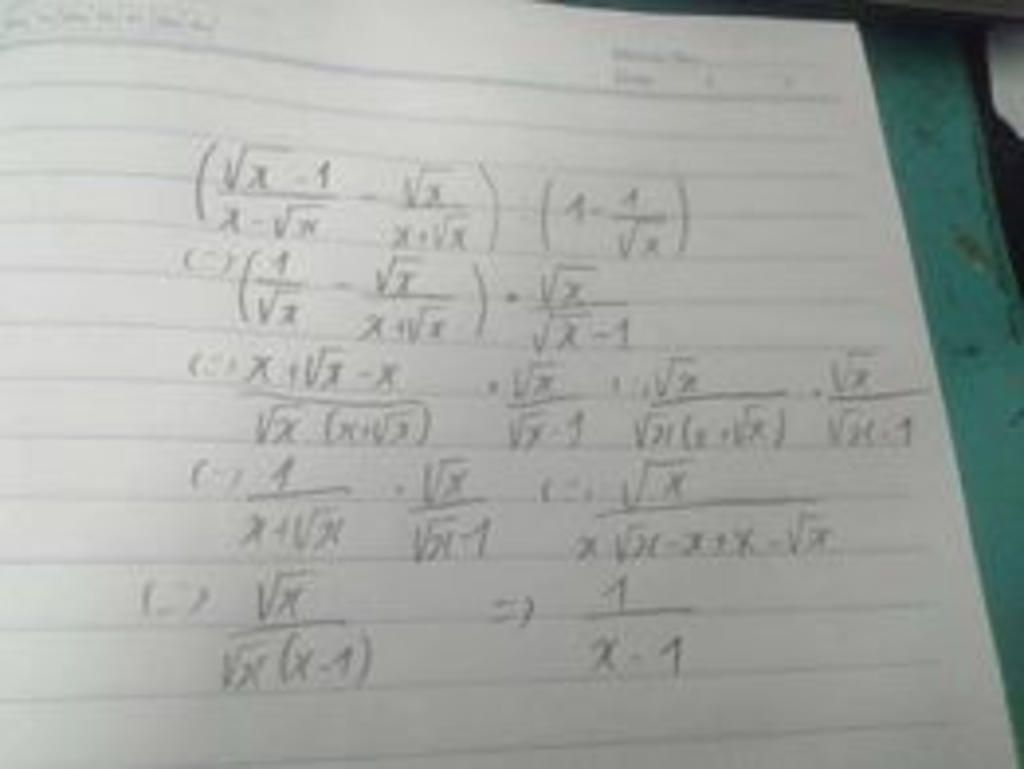 (√x - 1 / x - √x - √x / x + √x) : (1 - 1 / √x)
(=) (1 / √x - √x / x + √x) · √x / √x - 1
(=) x + √x - x / √x (x + √x) · √x / √x - 1 (=) √x / √x (x + √x) · √x / √x - 1
(=) 1 / x + √x · √x / √x - 1 (=) √x / x √x - x + x - √x
(=) √x / √x (x - 1) => 1 / x - 1